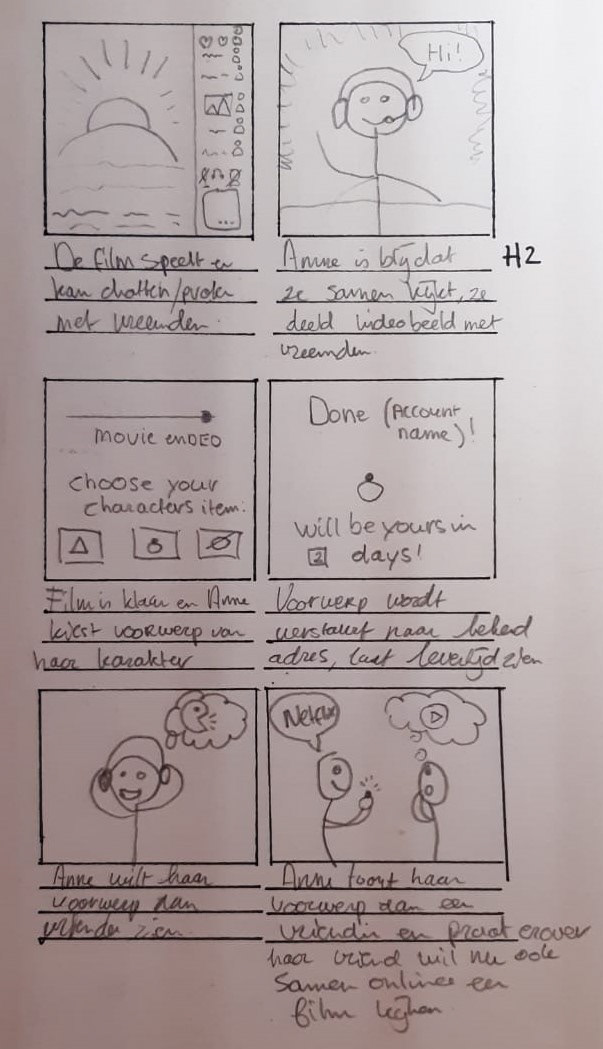 Hi!
De film speelt en
kan chatten/praten
met vreemden.
Anne is blij dat
ze samen kijkt, ze
deeld videobeeld met
vreemden.
H2
movie enDED
choose your
characters item:
Done (Account
name)!
will be yours in
2 days!
Film is klaar en Anne
kiest voorwerp van
haar karakter
Voorwerp wordt
verstuurt naar bekend
adres, laat levertijd zien
Netflix
Anne wilt haar
voorwerp aan
vrienden zien.
Anne toont haar
voorwerp aan een
vriendin en praat erover
haar vriend wil nu ook
samen online een
film kijken.